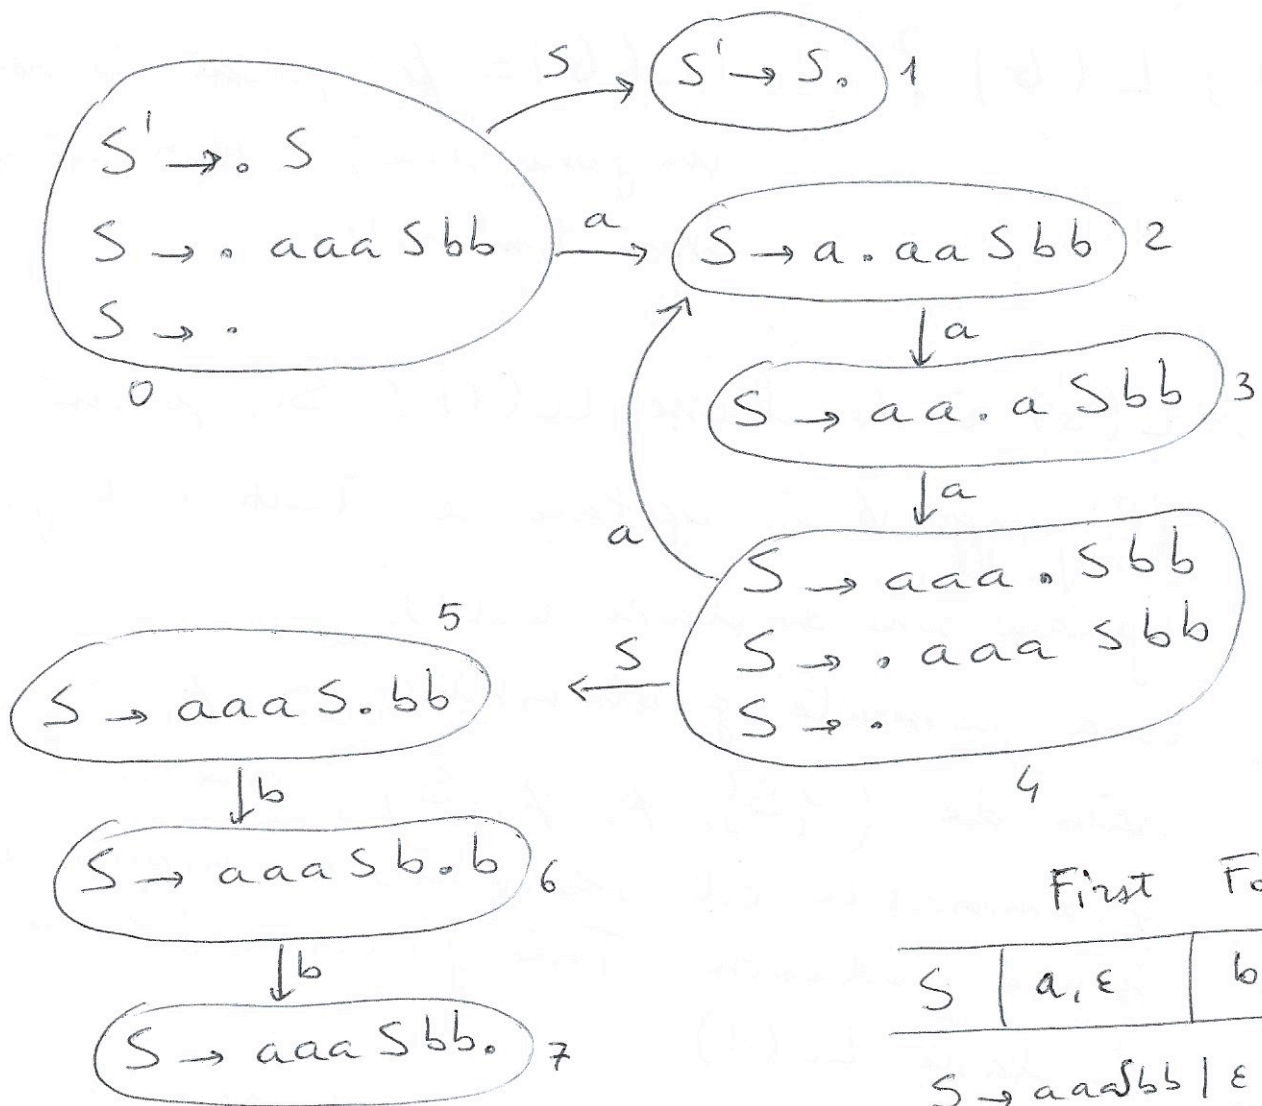 S
S' → S. 1
S' → . S
S → . aaa S bb
S → .
0
a
S → a . aa S bb 2
a
S → aa . a S bb 3
a
a
S → aaa . S bb
S → . aaa S bb
S → .
4
S
5
S → aaa S . bb
b
S → aaa S b . b 6
b
S → aaa S bb . 7
First
S | a, ε | b
S → aaa S bb | ε